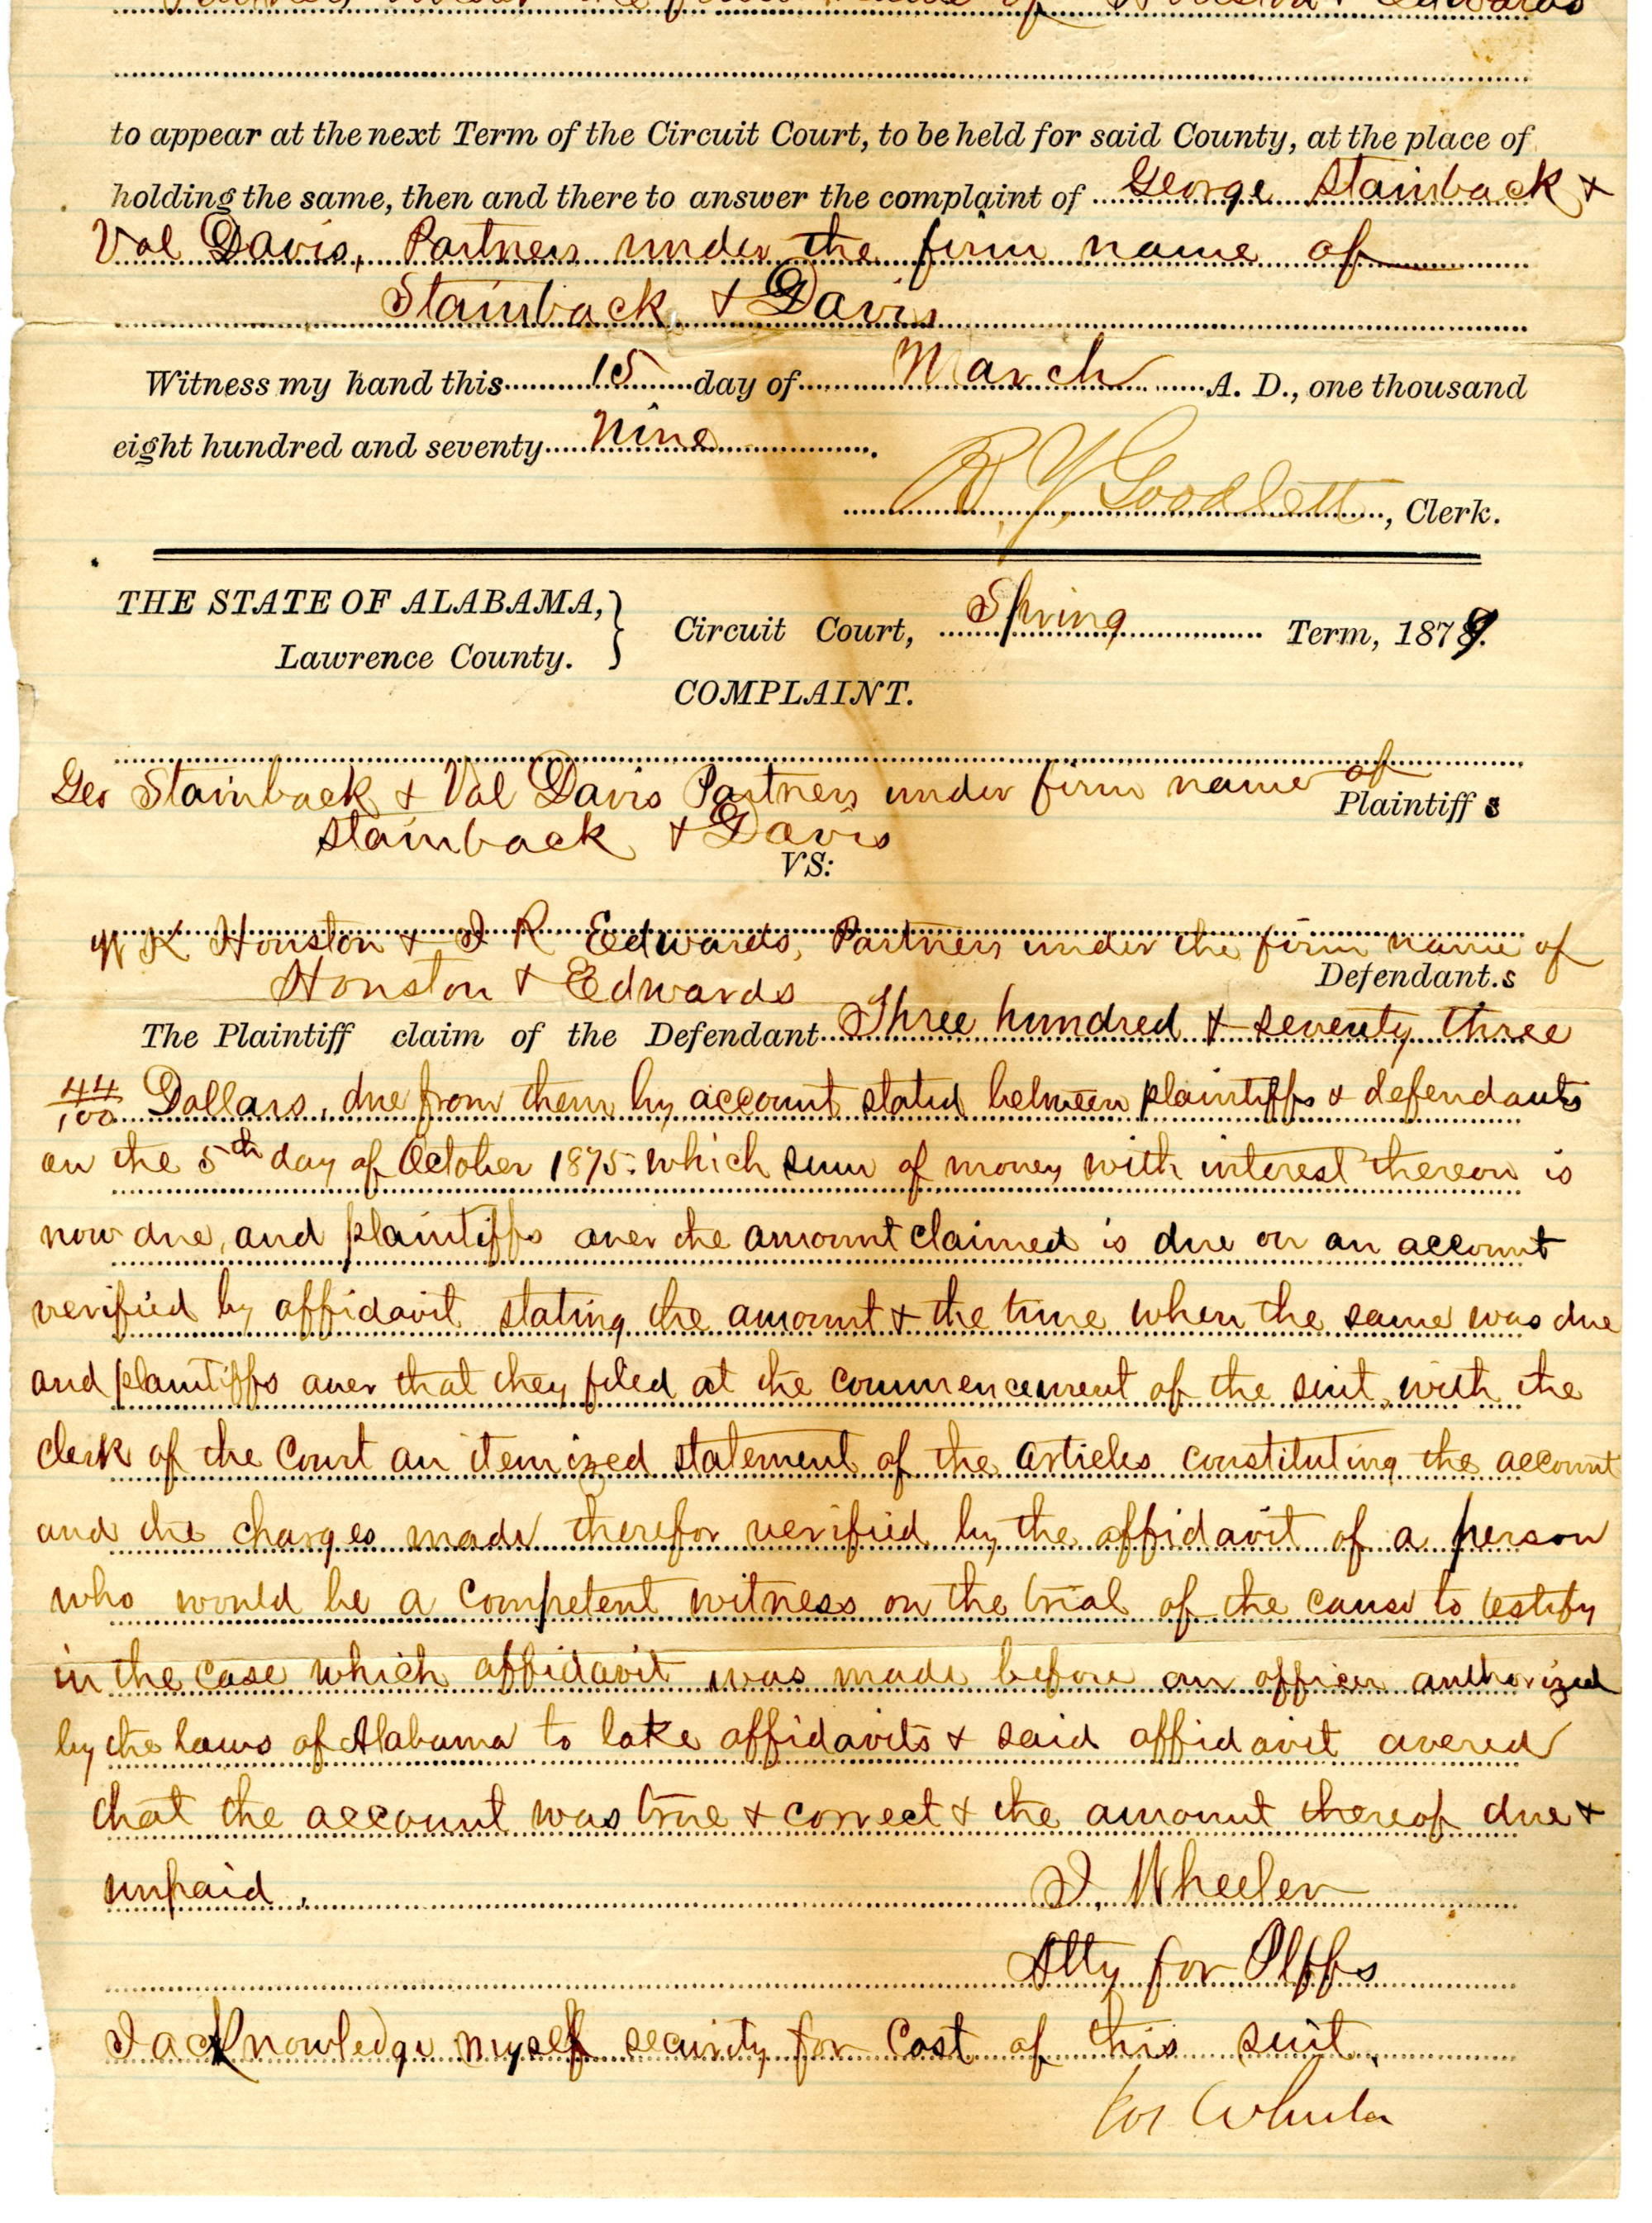 Partners under the firm name of Houston & Edwards
to appear at the next Term of the Circuit Court, to be held for said County, at the place of
holding the same, then and there to answer the complaint of George Stainback &
Val Davis, Partners under the firm name of
Stainback & Davis
Witness my hand this 15 day of March A. D., one thousand
eight hundred and seventy Nine.
Goodlett, Clerk.
THE STATE OF ALABAMA,
Lawrence County.
Circuit Court, Spring Term, 1879.
COMPLAINT.
Geo Stainback & Val Davis Partners under firm name of
Plaintiffs
Stainback & Davis
VS:
W K Houston & J R Edwards, Partners under the firm name of
Houston & Edwards
Defendant.s
The Plaintiff claim of the Defendant Three hundred & seventy three
44/100 Dollars, due from them by account stated between plaintiffs & defendants
on the 5th day of October 1875: which sum of money with interest thereon is
now due, and plaintiffs aver the amount claimed is due on an account
verified by affidavit stating the amount & the time when the same was due
and plaintiffs aver that they filed at the commencement of the suit, with the
clerk of the Court an itemized statement of the articles constituting the account
and the charges made therefor verified by the affidavit of a person
who would be a competent witness on the trial of the cause to testify
in the case which affidavit was made before an officer authorized
by the laws of Alabama to take affidavits & said affidavit avered
that the account was true & correct & the amount thereof due &
unpaid.
J. Wheeler
Atty for Plffs
I acknowledge myself security for Cost of this suit.
Jos Wheeler